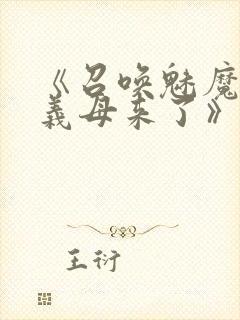 《召唤魅魔
义母来了》
王衍